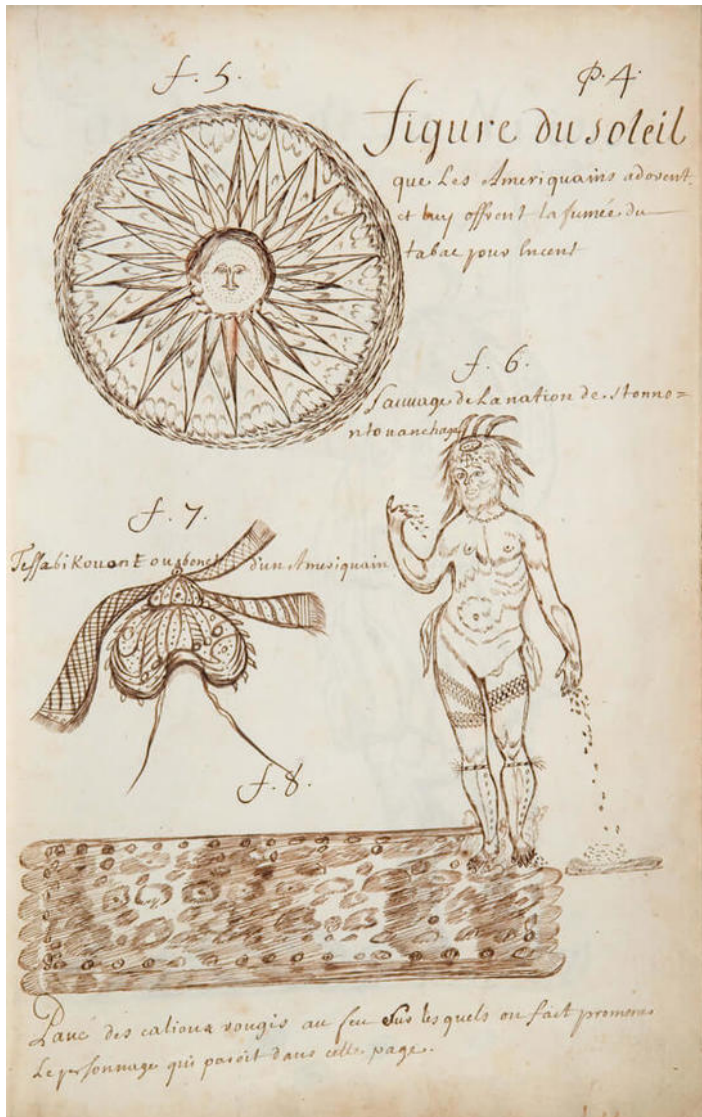 f. 5.
P. 4.
figure du soleil
que Les Ameriquains adorent.
et luy offrent la fumée du
tabac pour Encent
f. 6.
Sauuage de La nation de stonno=
ntouanchage
f. 7.
Tessabikouont ou bonet d'un Ameriquain
f. 8.
Paué des calioux rougis au feu Sur lesquels on fait promener
Le personnage qui paroit dans cette page.